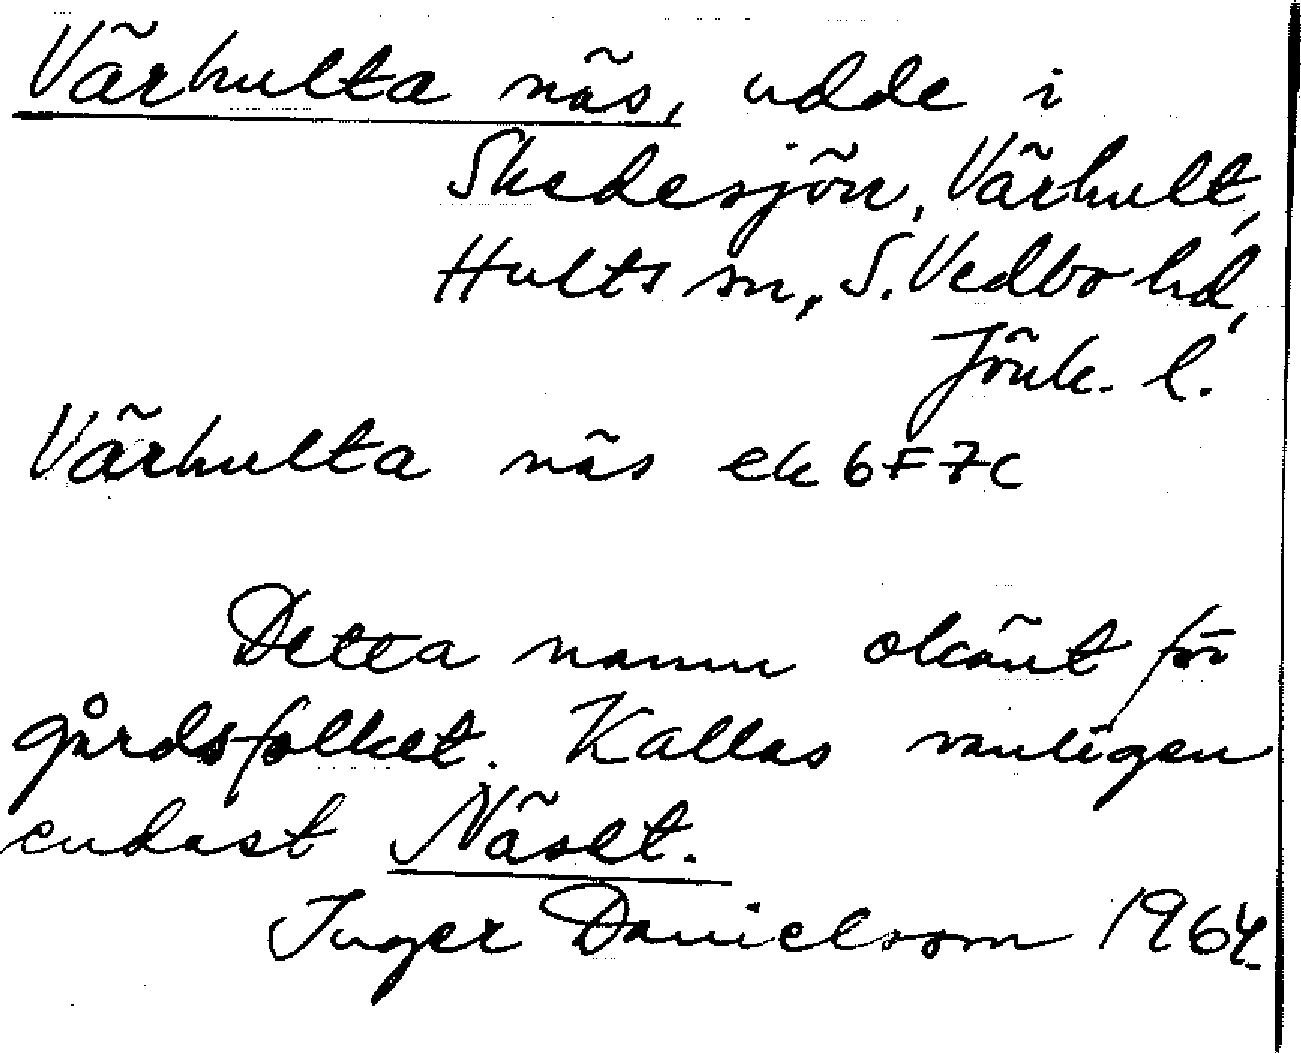 Värhulta näs, udde i
Skedesjön, Värhult,
Hults sn, S. Vedbo hd,
Jönk. l.
Värhulta näs ek 6F7c
Detta namn okänt för
gårdsfolket. Kallas vanligen
endast Näset.
Inger Danielsson 1964